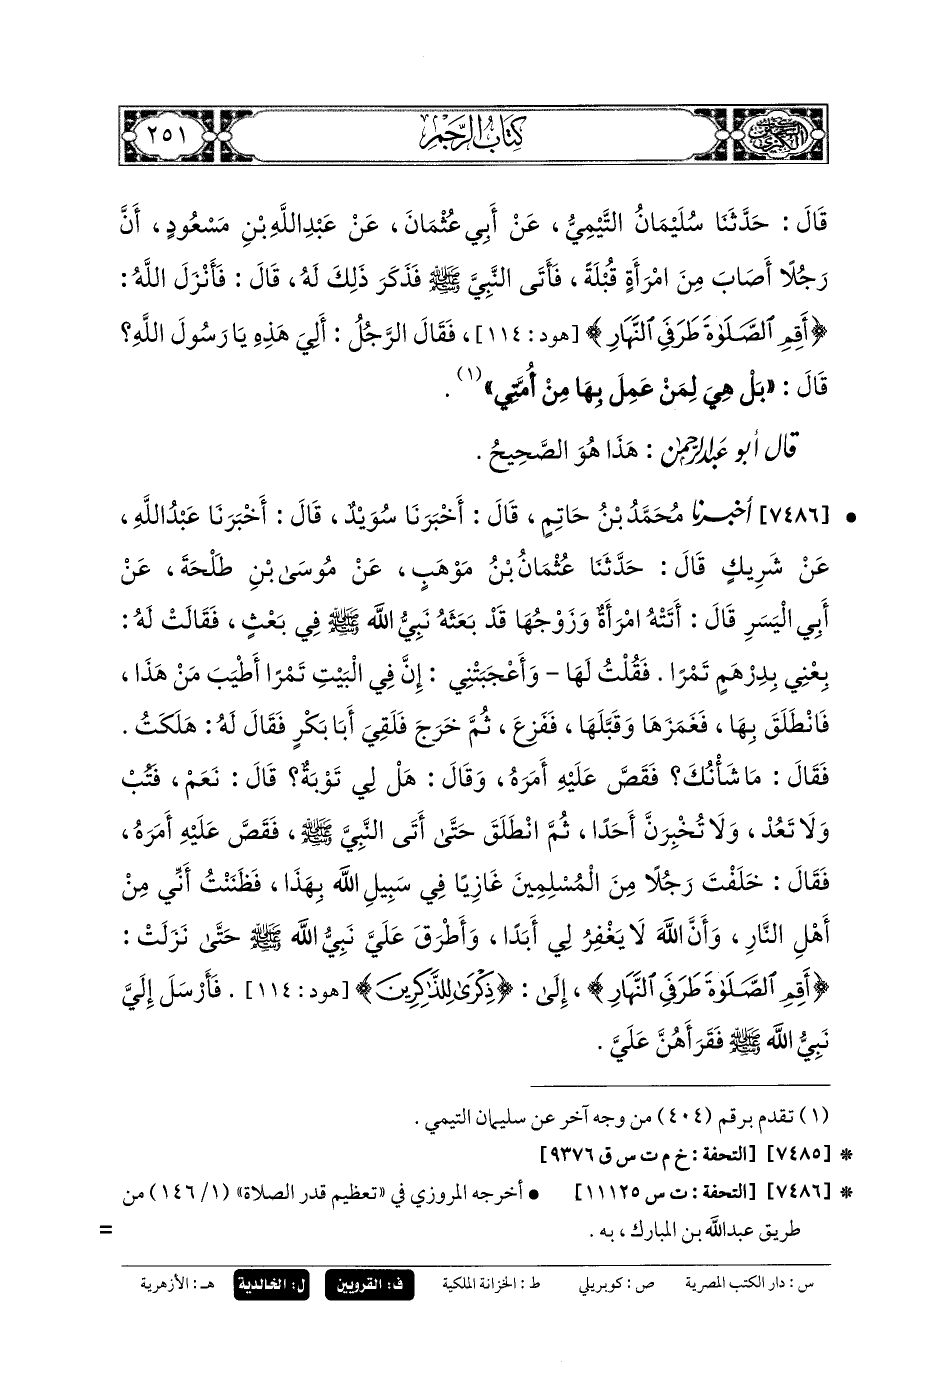 السنن الكبرى كتاب الرجم ٢٥١
قَالَ : حَدَّثَنَا سُلَيْمَانُ التَّيْمِيُّ ، عَنْ أَبِي عُثْمَانَ ، عَنْ عَبْدِاللَّهِ بْنِ مَسْعُودٍ ، أَنَّ
رَجُلًا أَصَابَ مِنَ امْرَأَةٍ قُبْلَةً ، فَأَتَى النَّبِيَّ ﷺ فَذَكَرَ ذَلِكَ لَهُ ، قَالَ : فَأَنْزَلَ اللَّهُ :
﴿أَقِمِ ٱلصَّلَوٰةَ طَرَفَيِ ٱلنَّهَارِ﴾ [هود : ١١٤] ، فَقَالَ الرَّجُلُ : أَلِيَ هَذِهِ يَا رَسُولَ اللَّهِ؟
قَالَ : «بَلْ هِيَ لِمَنْ عَمِلَ بِهَا مِنْ أُمَّتِي» (١) .
قال أبو عبدالرحمن : هَذَا هُوَ الصَّحِيحُ .
• [٧٤٨٦] أخبرنا مُحَمَّدُ بْنُ حَاتِمٍ ، قَالَ : أَخْبَرَنَا سُوَيْدٌ ، قَالَ : أَخْبَرَنَا عَبْدُاللَّهِ ،
عَنْ شَرِيكٍ قَالَ : حَدَّثَنَا عُثْمَانُ بْنُ مَوْهَبٍ ، عَنْ مُوسَى بْنِ طَلْحَةَ ، عَنْ
أَبِي الْيَسَرِ قَالَ : أَتَتْهُ امْرَأَةٌ وَزَوْجُهَا قَدْ بَعَثَهُ نَبِيُّ اللَّه ﷺ فِي بَعْثٍ ، فَقَالَتْ لَهُ :
بِعْنِي بِدِرْهَمٍ تَمْرًا . فَقُلْتُ لَهَا - وَأَعْجَبَتْنِي : إِنَّ فِي الْبَيْتِ تَمْرًا أَطْيَبَ مَنْ هَذَا ،
فَانْطَلَقَ بِهَا ، فَغَمَزَهَا وَقَبَّلَهَا ، فَفَزِعَ ، ثُمَّ خَرَجَ فَلَقِيَ أَبَا بَكْرٍ فَقَالَ لَهُ : هَلَكَتُ .
فَقَالَ : مَا شَأْنُكَ؟ فَقَصَّ عَلَيْهِ أَمَرَهُ ، وَقَالَ : هَلْ لِي تَوْبَةٌ؟ قَالَ : نَعَمْ ، فَتُبْ
وَلَا تَعُدْ ، وَلَا تُخْبِرَنَّ أَحَدًا ، ثُمَّ انْطَلَقَ حَتَّى أَتَى النَّبِيَّ ﷺ ، فَقَصَّ عَلَيْهِ أَمَرَهُ ،
فَقَالَ : خَلَفْتَ رَجُلًا مِنَ الْمُسْلِمِينَ غَازِيًا فِي سَبِيلِ اللَّه بِهَذَا ، فَظَنَنْتُ أَنِّي مِنْ
أَهْلِ النَّارِ ، وَأَنَّ اللَّهَ لَا يَغْفِرُ لِي أَبَدًا ، وَأَطْرَقَ عَلَيَّ نَبِيُّ اللَّه ﷺ حَتَّى نَزَلَتْ :
﴿أَقِمِ ٱلصَّلَوٰةَ طَرَفَيِ ٱلنَّهَارِ﴾ ، إِلَى : ﴿ذِكْرَىٰ لِلذَّٰكِرِينَ﴾ [هود : ١١٤] . فَأَرْسَلَ إِلَيَّ
نَبِيُّ اللَّه ﷺ فَقَرَأَهُنَّ عَلَيَّ .
(١) تقدم برقم (٤٠٤) من وجه آخر عن سليمان التيمي .
* [٧٤٨٥] [التحفة : خ م ت س ق ٩٣٧٦]
* [٧٤٨٦] [التحفة : ت س ١١١٢٥] • أخرجه المروزي في «تعظيم قدر الصلاة» (١/ ١٤٦) من
طريق عبدالله بن المبارك ، به . =
س : دار الكتب المصرية ص : كوبريلي ط : الخزانة الملكية ف: القرويين ل: الخالدية هـ : الأزهرية